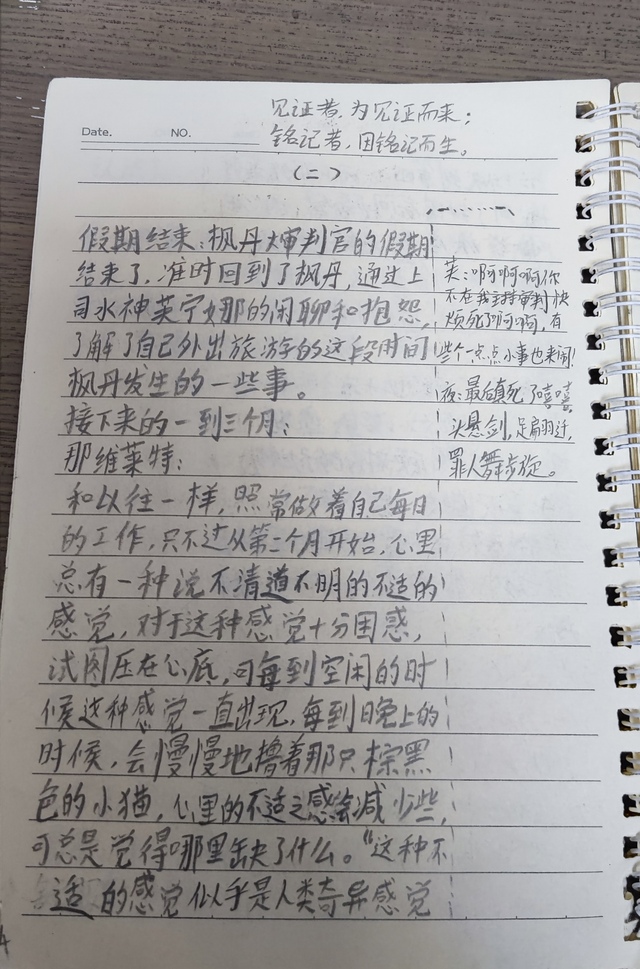 见证者,为见证而来;
Date. NO. 铭记者,因铭记而生。
(二)
假期结束:枫丹大审判官的假期
结束了,准时回到了枫丹,通过上
司水神芙宁娜的闲聊和抱怨,
了解了自己外出旅游的这段时间
枫丹发生的一些事。
接下来的一到三个月:
那维莱特:
和以往一样,照常做着自己每日
的工作,只不过从第二个月开始,心里
总有一种说不清道不明的不适的
感觉,对于这种感觉十分困惑,
试图压在心底,可每到空闲的时
候这种感觉一直出现,每到晚上的
时候,会慢慢地撸着那只棕黑
色的小猫,心里的不适之感会减少些,
可总是觉得哪里缺了什么。“这种不
适的感觉似乎是人类奇异感觉
芙:啊啊啊啊你
不在我主持审判快
烦死了啊啊,有
些个一点点小事也来闹!
夜:最后死了嘻嘻
头悬剑,足扁迁,
罪人舞步旋。
4